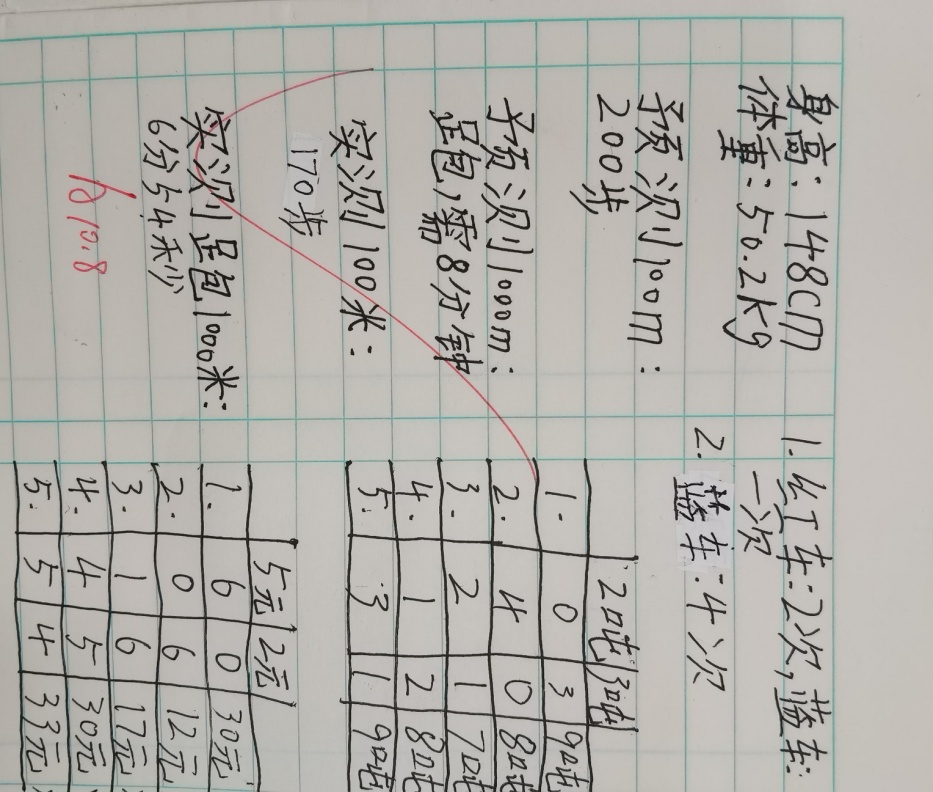 身高：148cm
体重：50.2kg
予预测100m：
200步
予预测1000m：
足包,需8分钟
实测100米：
170步
实测足包1000米：
6分54秒
10.8
1. 红车：2次,蓝车：
一次
2. 蓝车：4次
2吨 3吨
1. 0 3 9吨
2. 4 0 8吨
3. 2 1 7吨
4. 1 2 8吨
5. 3 1 9吨
5元 2元
1. 6 0 30元
2. 0 6 12元
3. 1 6 17元
4. 4 5 30元
5. 5 4 33元